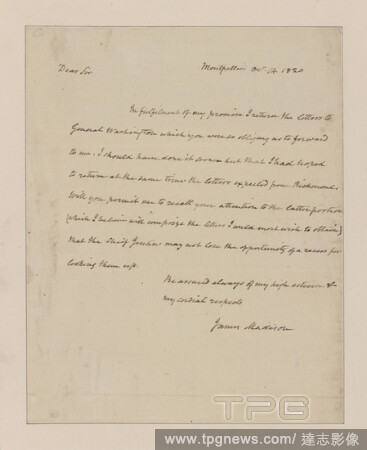 Dear Sir
Montpellier Oct. 14. 1820
In fulfilment of my promise I return the letters to
General Washington which you were so obliging as to forward
to me. I should have done it sooner but that I had hoped
to return at the same time the letters expected from Richmond.
Will you permit me to recall your attention to the latter portion
(which I believe will comprize the letters I would most wish to obtain)
that the Chief Justice may not lose the opportunity of a recess for
looking them up.
Be assured always of my high esteem &
my cordial respects
James Madison
TPG
www.tpgnews.com / 達志影像